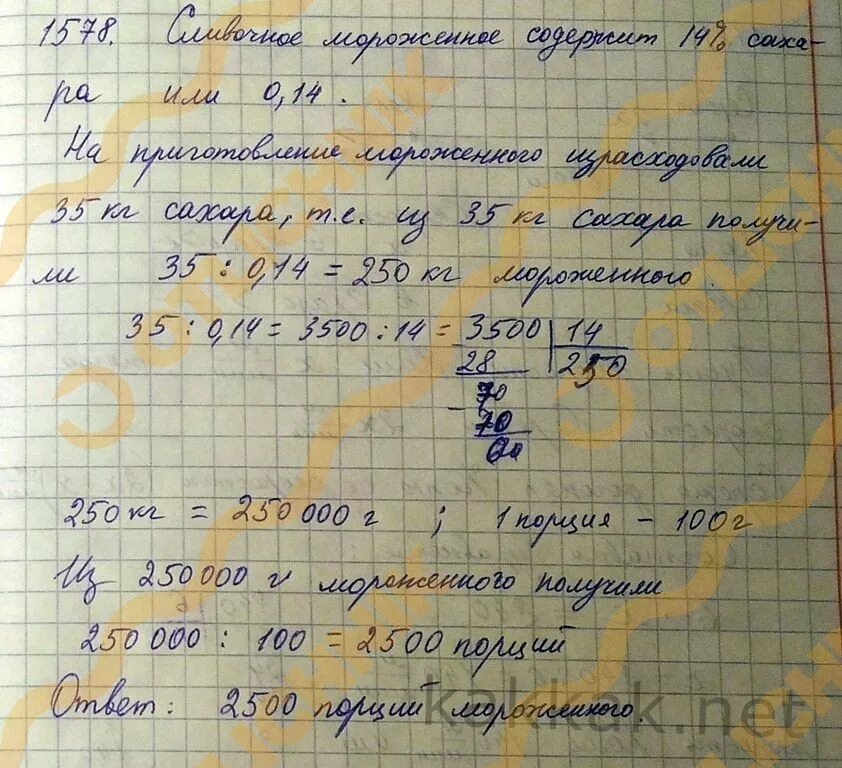 1578. Сливочное мороженное содержит 14% саха-
ра или 0,14.
На приготовление мороженного израсходовали
35 кг сахара, т.е. из 35 кг сахара получи-
ли 35 : 0,14 = 250 кг мороженного.
35 : 0,14 = 3500 : 14 = 3500 | 14
28 | 250
- 70
70
0
250 кг = 250 000 г ; 1 порция - 100 г
Из 250 000 г мороженного получили
250 000 : 100 = 2500 порций
Ответ: 2500 порций мороженного.
kakkak.net
ОТЛИЧНИК